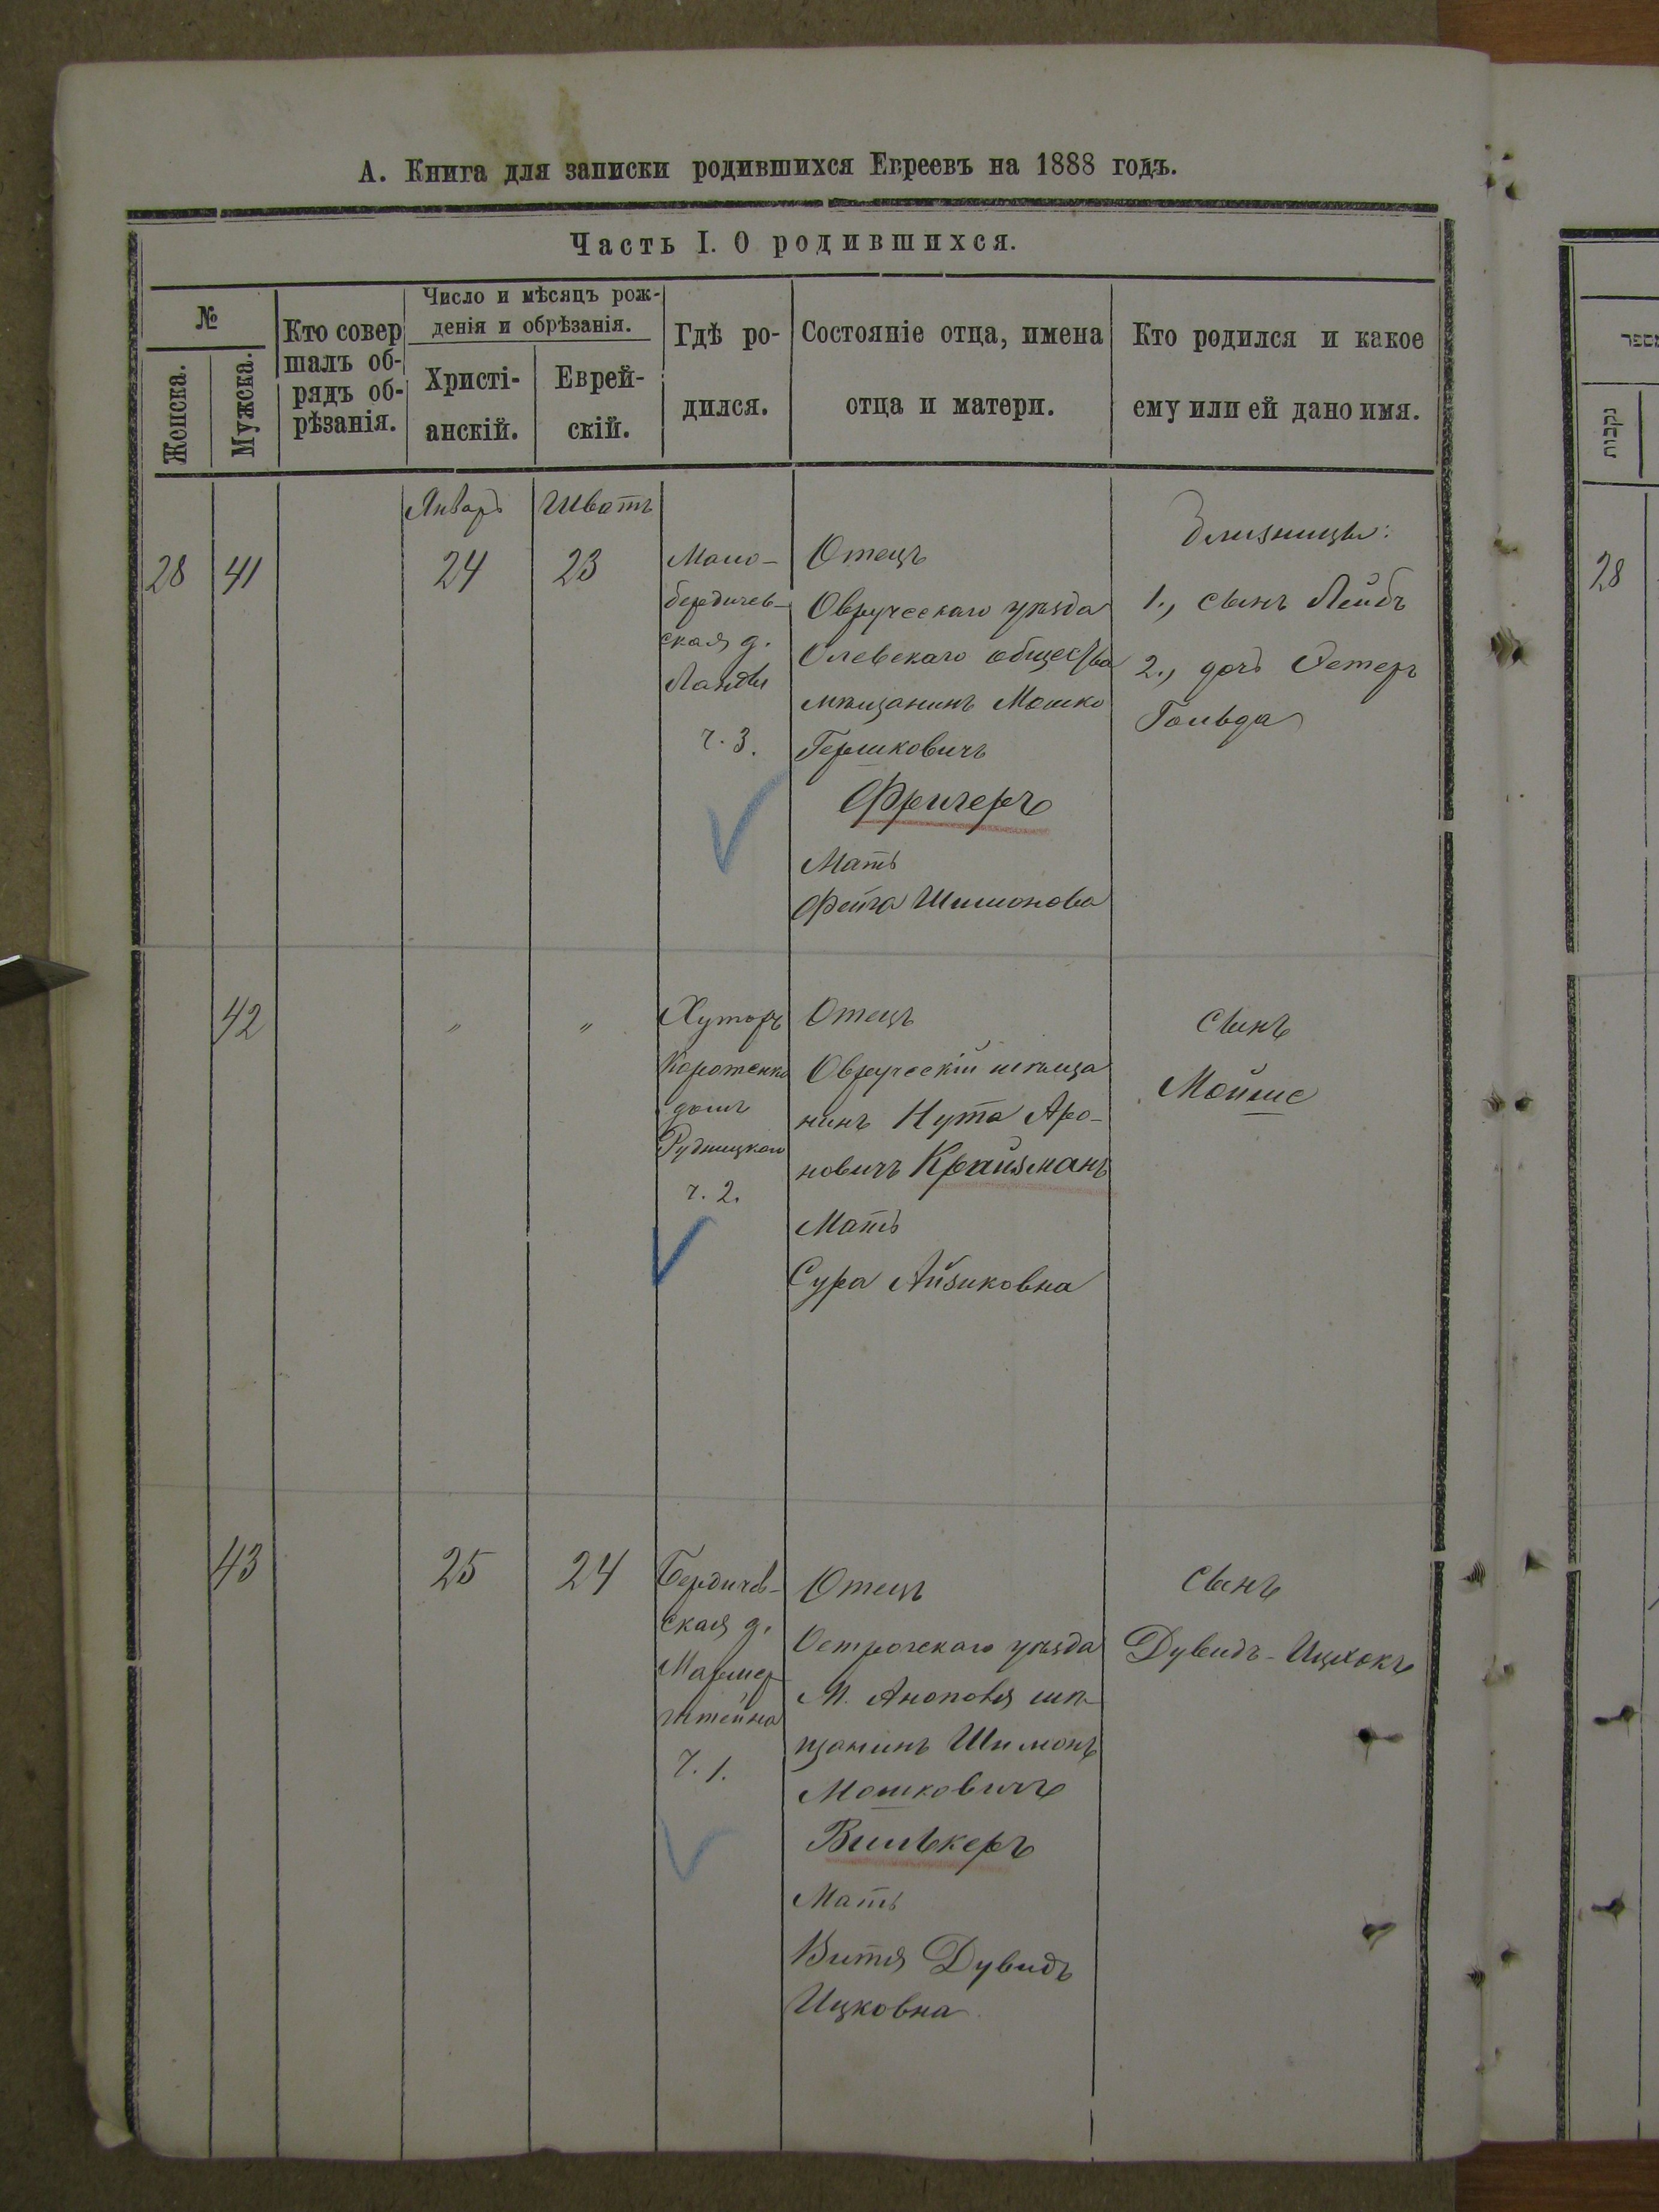 А. Книга для записки родившихся Евреевъ на 1888 годъ.
Часть I. О родившихся.
№
Женска.
Мужска.
Кто совер
шалъ об-
рядъ об-
рѣзанія.
Число и мѣсяцъ рож-
денія и обрѣзанія.
Христі-
анскій.
Еврей-
скій.
Гдѣ ро-
дился.
Состояніе отца, имена
отца и матери.
Кто родился и какое
ему или ей дано имя.
28
41
Январь
24
Шватъ
23
Мало-
бердичев-
ская д.
Ланды
ч. 3.
Отецъ
Овручскаго уѣзда
Олевскаго общества
мѣщанинъ Мошко
Гершковичъ
Фричеръ
Мать
Фейга Шимонова
Близницы:
1., сынъ Лейбъ
2., дочь Эстеръ
Гольда
42
"
"
Хуторъ
Короженко
домъ
Рудницкаго
ч. 2.
Отецъ
Овручскій мѣща
нинъ Нута Аро-
новичъ Крайзманъ
Мать
Сура Айзиковна
сынъ
Мойше
43
25
24
Бердичев-
ская д.
Мармер
штейна
ч. 1.
Отецъ
Острогскаго уѣзда
М. Аннополя мѣ-
щанинъ Шимонъ
Мошковичъ
Вилькеръ
Мать
Витя Дувидъ
Ицковна
сынъ
Дувидъ-Ицхокъ
מספר
נקבות
28